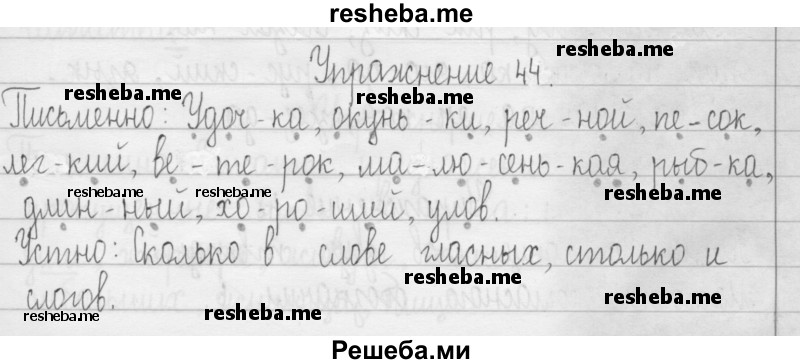 resheba.me
Упражнение 44.
resheba.me
resheba.me
resheba.me
Письменно: Удоч-ка, окунь-ки, реч-ной, пе-сок,
лег-кий, ве-те-рок, ма-лю-сень-кая, рыб-ка,
resheba.me
resheba.me
длин-ный, хо-ро-ший, улов.
Устно: Сколько в слове гласных, столько и
resheba.me
слогов.
resheba.me
resheba.me
resheba.me
Решеба.ми